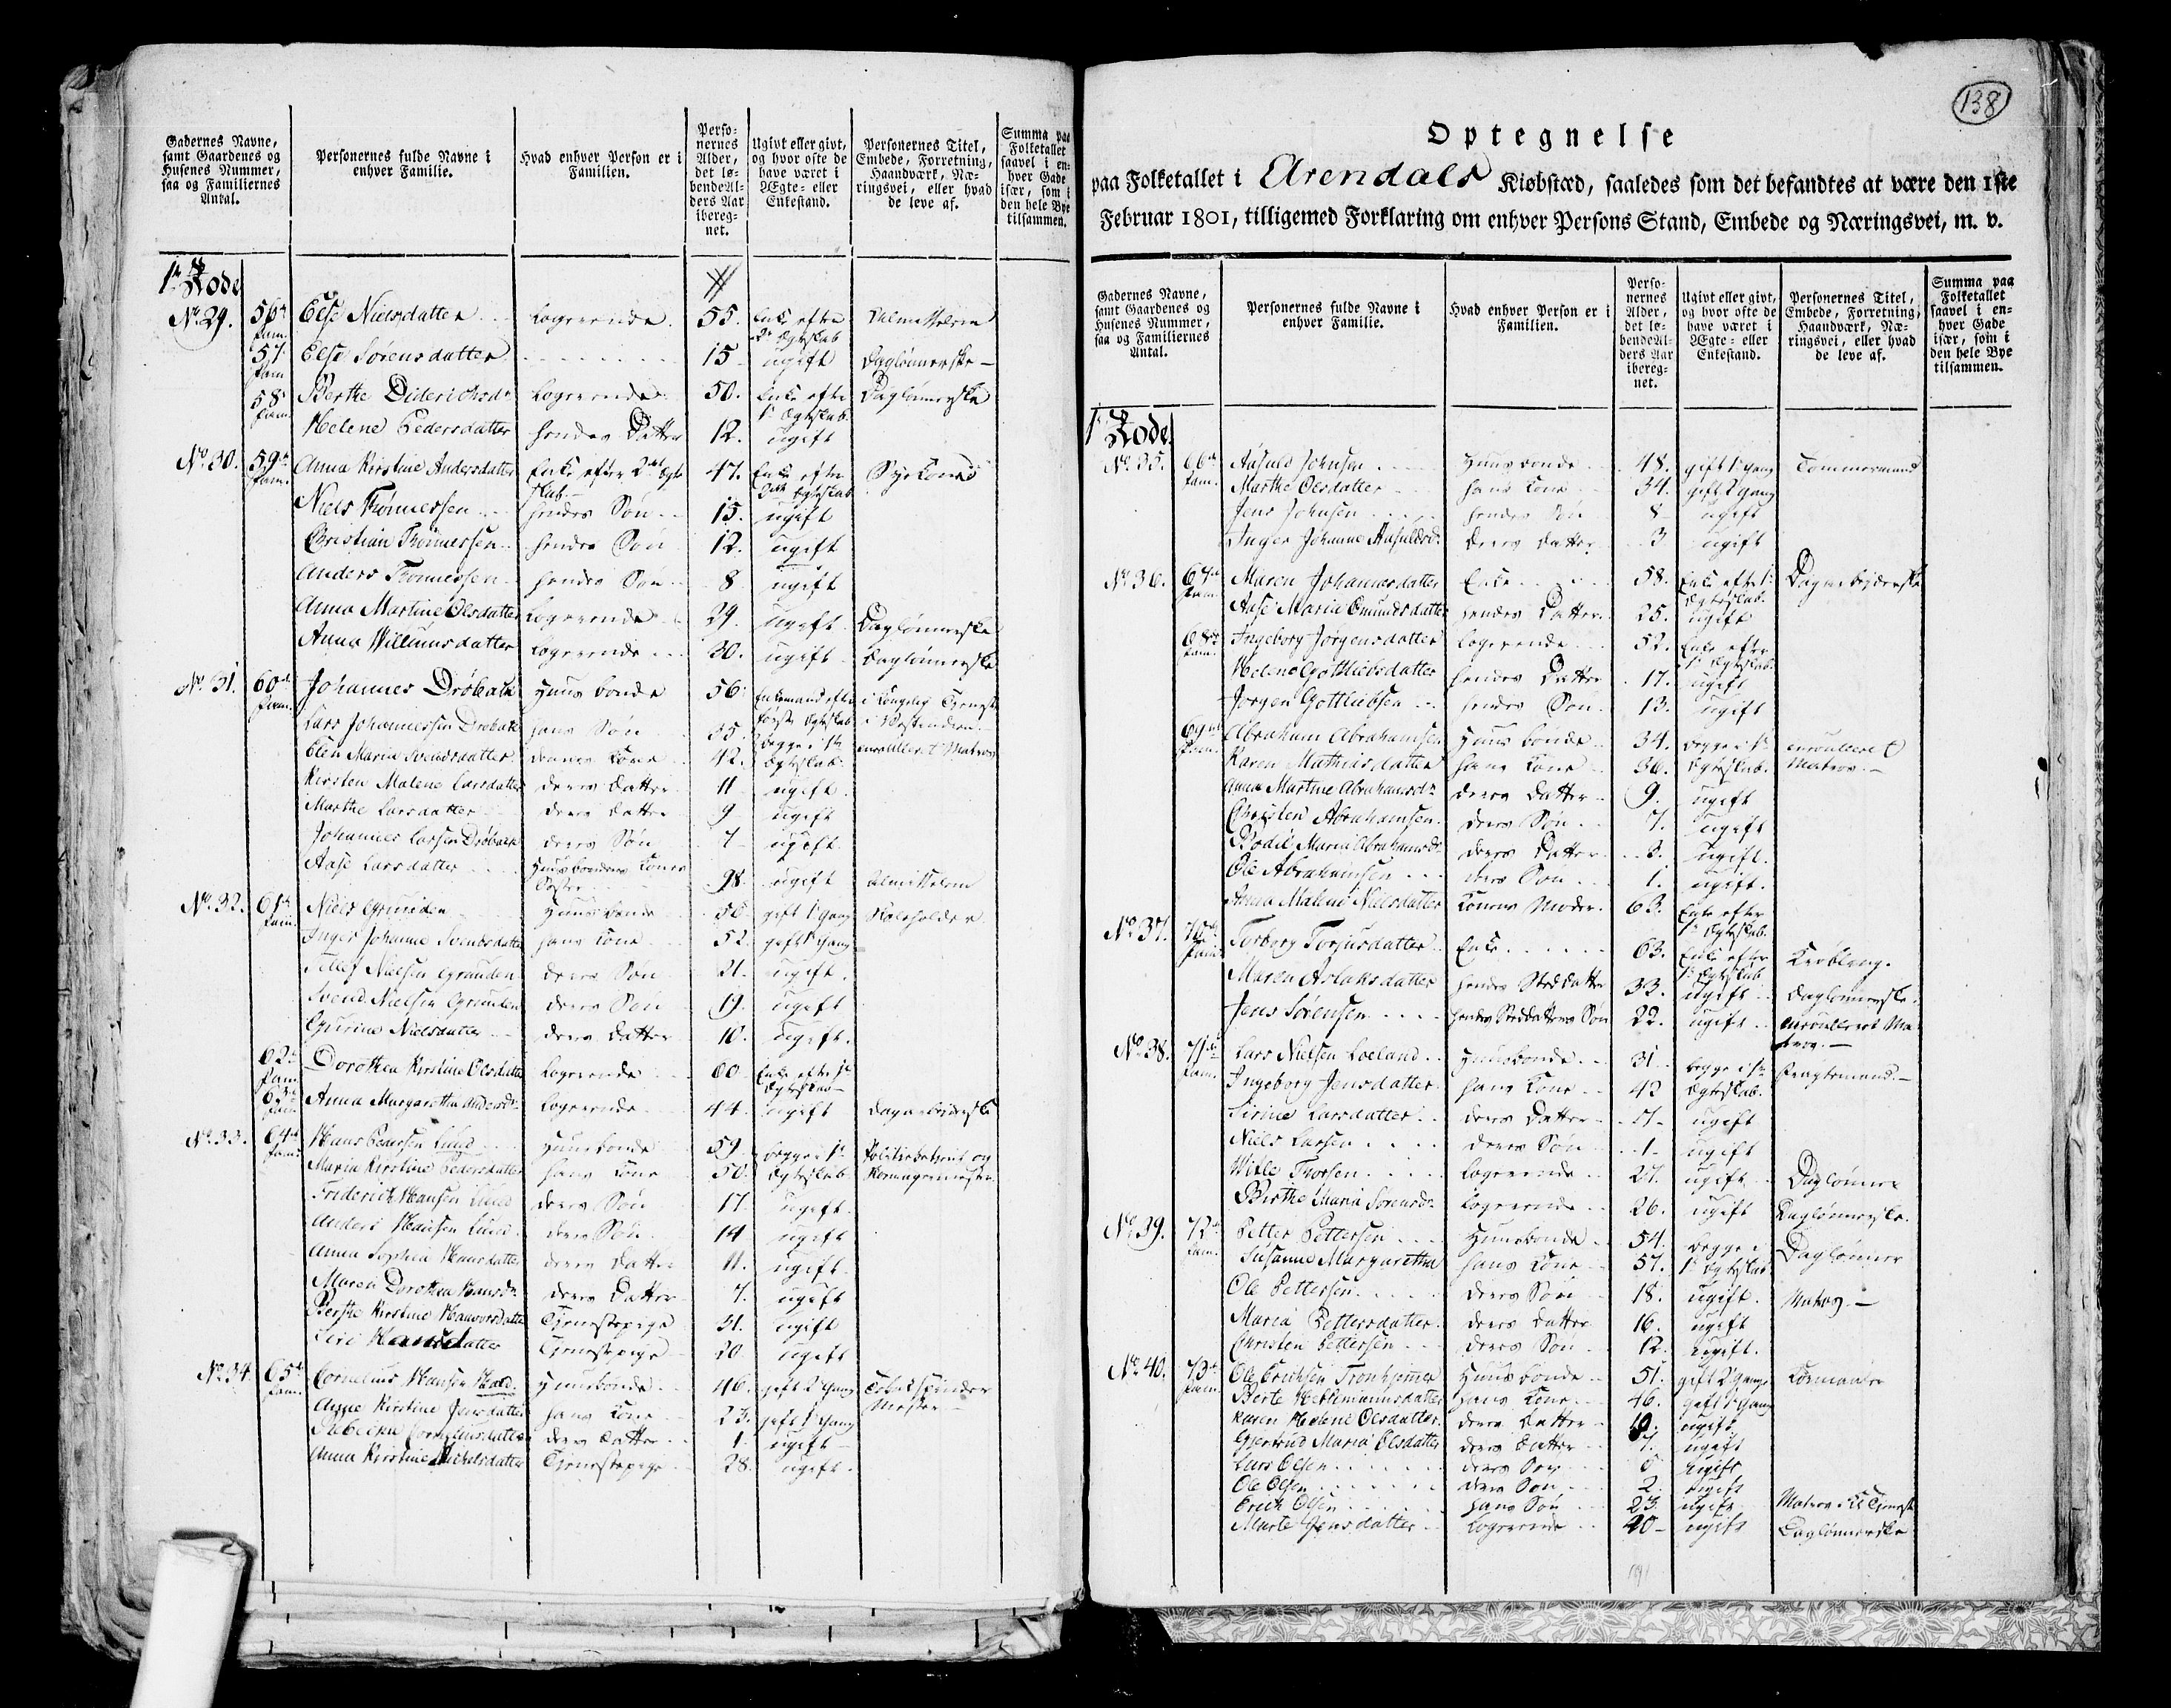 Gadernes Navne, samt Gaardenes og Husenes Nummer, saa og Familiernes Antal.
Personernes fulde Navne i enhver Familie.
Hvad enhver Person er i Familien.
Personernes Alder, det løbende Alders Aar iberegnet.
Ugivt eller givt, og hvor ofte de have været i Ægte- eller Enkestand.
Personernes Titel, Embede, Forretning, Haandværk, Næringsvei, eller hvad de leve af.
Summa paa Folketallet saavel i enhver Gade især, som i den hele Bye tilsammen.
1ste Rode
No. 29. 56de fam. Else Nielsdatter Logerende. 55. Enke efter 2det Ægteskab Almisselem
57. fam. Else Sørensdatter 15 ugift Daglønnerske
58. fam. Berthe Diderichsdr. Logerende 50. Enke efter 1ste Ægteskab Daglønnerske
Helene Pedersdatter hendes Datter 12. ugift
No. 30. 59de fam. Anna Kirstine Andersdatter Enke efter 2det Ægteskab 47. Enke efter 2det Ægteskab Syekone
Niels Thønnessen hendes Søn 15. ugift
Christian Thønnessen hendes Søn 12. ugift
Anders Thønnessen hendes Søn 8 ugift
Anna Martine Olsdatter Logerende 29. ugift Daglønnerske
Anna Willumsdatter Logerende 30. ugift Daglønnerske
No. 31. 60de fam. Johannes Drøbach Huusbonde 56. Enkemand efter første Ægteskab i Kongelig Tjeneste i Vestindien
Lars Johannessen Drøbach hans Søn 35. begge i 1ste Ægteskab enroulleret Matros
Elen Maria Svendsdatter dennes Kone 42.
Kirsten Malene Larsdatter deres Datter 11 ugift
Marthe Larsdatter deres Datter 9 ugift
Johannes Larsen Drøbach deres Søn 7 ugift
Aase Larsdatter Huusbondens Kones Søster 98. ugift Almisselem
No. 32. 61de fam. Niels Grunden Huusbonde 56 gift 1 Gang
Inger Johanne Svendsdatter hans Kone 52. gift 1 Gang
Tellef Nielsen Grunden deres Søn 21. ugift
Svend Nielsen Grunden deres Søn 19 ugift
Gurine Nielsdatter deres Datter 10. ugift.
62de fam. Dorothea Kirstine Olsdatter Logerende 60 Enke efter 1ste Ægteskab
63de fam. Anna Margaretha Andersdr. Logerende 44. ugift Dagarbeiderske
No. 33. 64de fam. Hans Pedersen Lund Huusbonde 59 begge i 1ste Ægteskab Politiebetjent og
Maria Kirstine Pedersdatter hans Kone 50.
Friderich Hansen Lund deres Søn 17. ugift.
Anders Hansen Lund deres Søn 14 ugift
Anna Sophia Hansdatter deres Datter 11. ugift
Maren Dorothea Hansdr. deres Datter 7. ugift
Berthe Kirstine Halvorsdatter Tjenestepige 31. ugift
Siri Hansdatter Tjenestepige 20 ugift
No. 34. 65de fam. Cornelius Hansen Huusbonde 46. gift 2 Gang Tobakspinder Mester
Anne Kirstine Jensdatter hans Kone 23. gift 1 Gang
Rebecka Corneliusdatter deres Datter 1. ugift
Anna Kirstine Michelsdatter Tjenestepige 28. ugift.
138
Optegnelse
paa Folketallet i Arendals Kiøbstæd, saaledes som det befandtes at være den 1ste
Februar 1801, tilligemed Forklaring om enhver Persons Stand, Embede og Næringsvei, m. v.
Gadernes Navne, samt Gaardenes og Husenes Nummer, saa og Familiernes Antal.
Personernes fulde Navne i enhver Familie.
Hvad enhver Person er i Familien.
Personernes Alder, det løbende Alders Aar iberegnet.
Ugivt eller givt, og hvor ofte de have været i Ægte- eller Enkestand.
Personernes Titel, Embede, Forretning, Haandværk, Næringsvei, eller hvad de leve af.
Summa paa Folketallet saavel i enhver Gade især, som i den hele Bye tilsammen.
1ste Rode
No. 35. 66de fam. Aasuld Johnsen Huusbonde 48. gift 1 Gang Tømmermand
Marthe Olsdatter hans Kone 34. gift 2 Gang
Jens Johnsen hendes Søn 8 ugift
Inger Johanne Aasuldsdr. deres Datter 3 ugift
No. 36. 67de fam. Maren Johannesdatter Enke 58. Enke efter 1ste Ægteskab. Dagarbeiderske
Aase Maria Omundsdatter hendes Datter 25. ugift
68de fam. Ingeborg Jørgensdatter Logerende 52. Enke efter 1ste Ægteskab
Helene Gottliebsdatter hendes Datter 17. ugift
Jørgen Gottliebsen hendes Søn 13. ugift
69de fam. Abraham Abrahamsen Huusbonde 34. begge i 1ste Ægteskab. enroulleret Matros
Karen Mathiasdatter hans Kone 36.
Anna Martine Abrahamsdr. deres Datter 9. ugift
Christen Abrahamsen deres Søn 7. ugift
Bodil Maria Abrahamsdr. deres Datter 3. ugift.
Ole Abrahamsen deres Søn 1. ugift.
Anna Malene Nielsdatter Konens Moder. 63. Enke efter 1ste Ægteskab.
No. 37. 70de fam. Torborg Torjusdatter Enke 63. Enke efter 1ste Ægteskab
Maren Aslaksdatter hendes Steddatter 33. ugift Daglønnerske
Jens Sørensen hendes Steddatters Søn 22. ugift enroulleret Matros
No. 38. 71de fam. Lars Nielsen Loeland Huusbonde 31. begge i 1ste Ægteskab. Fragtemand
Ingeborg Jensdatter hans Kone 42
Sirine Larsdatter deres Datter ugift
Niels Larsen deres Søn 1 ugift
Thorsen Logerende 27. ugift Daglønner
Birthe Maria Sørensdr. Logerende 26. ugift Daglønnerske.
No. 39. 72de fam. Petter Pettersen Huusbonde 54. begge i 1ste Ægteskab Daglønner
Susanne Margaretha hans Kone 57.
Ole Pettersen deres Søn 18. ugift. Matros
Maria Pettersdatter deres Datter 16. ugift
Christen Pettersen deres Søn 12. ugift.
No. 40. 73de fam. Ole Erichsen Tronhjemmer Huusbonde 51. gift 2 Gange
Berte hans Kone 46. gift 1 Gang
Karen Helene Olsdatter deres Datter ugift
Gjertrud Maria Olsdatter deres Datter 7. ugift
Lars Olsen deres Søn ugift
Ole Olsen deres Søn 2. ugift
Erich Olsen hans Søn 23 ugift Matros i Tjeneste
Marte Jensdatter Logerende 40 ugift Daglønnerske